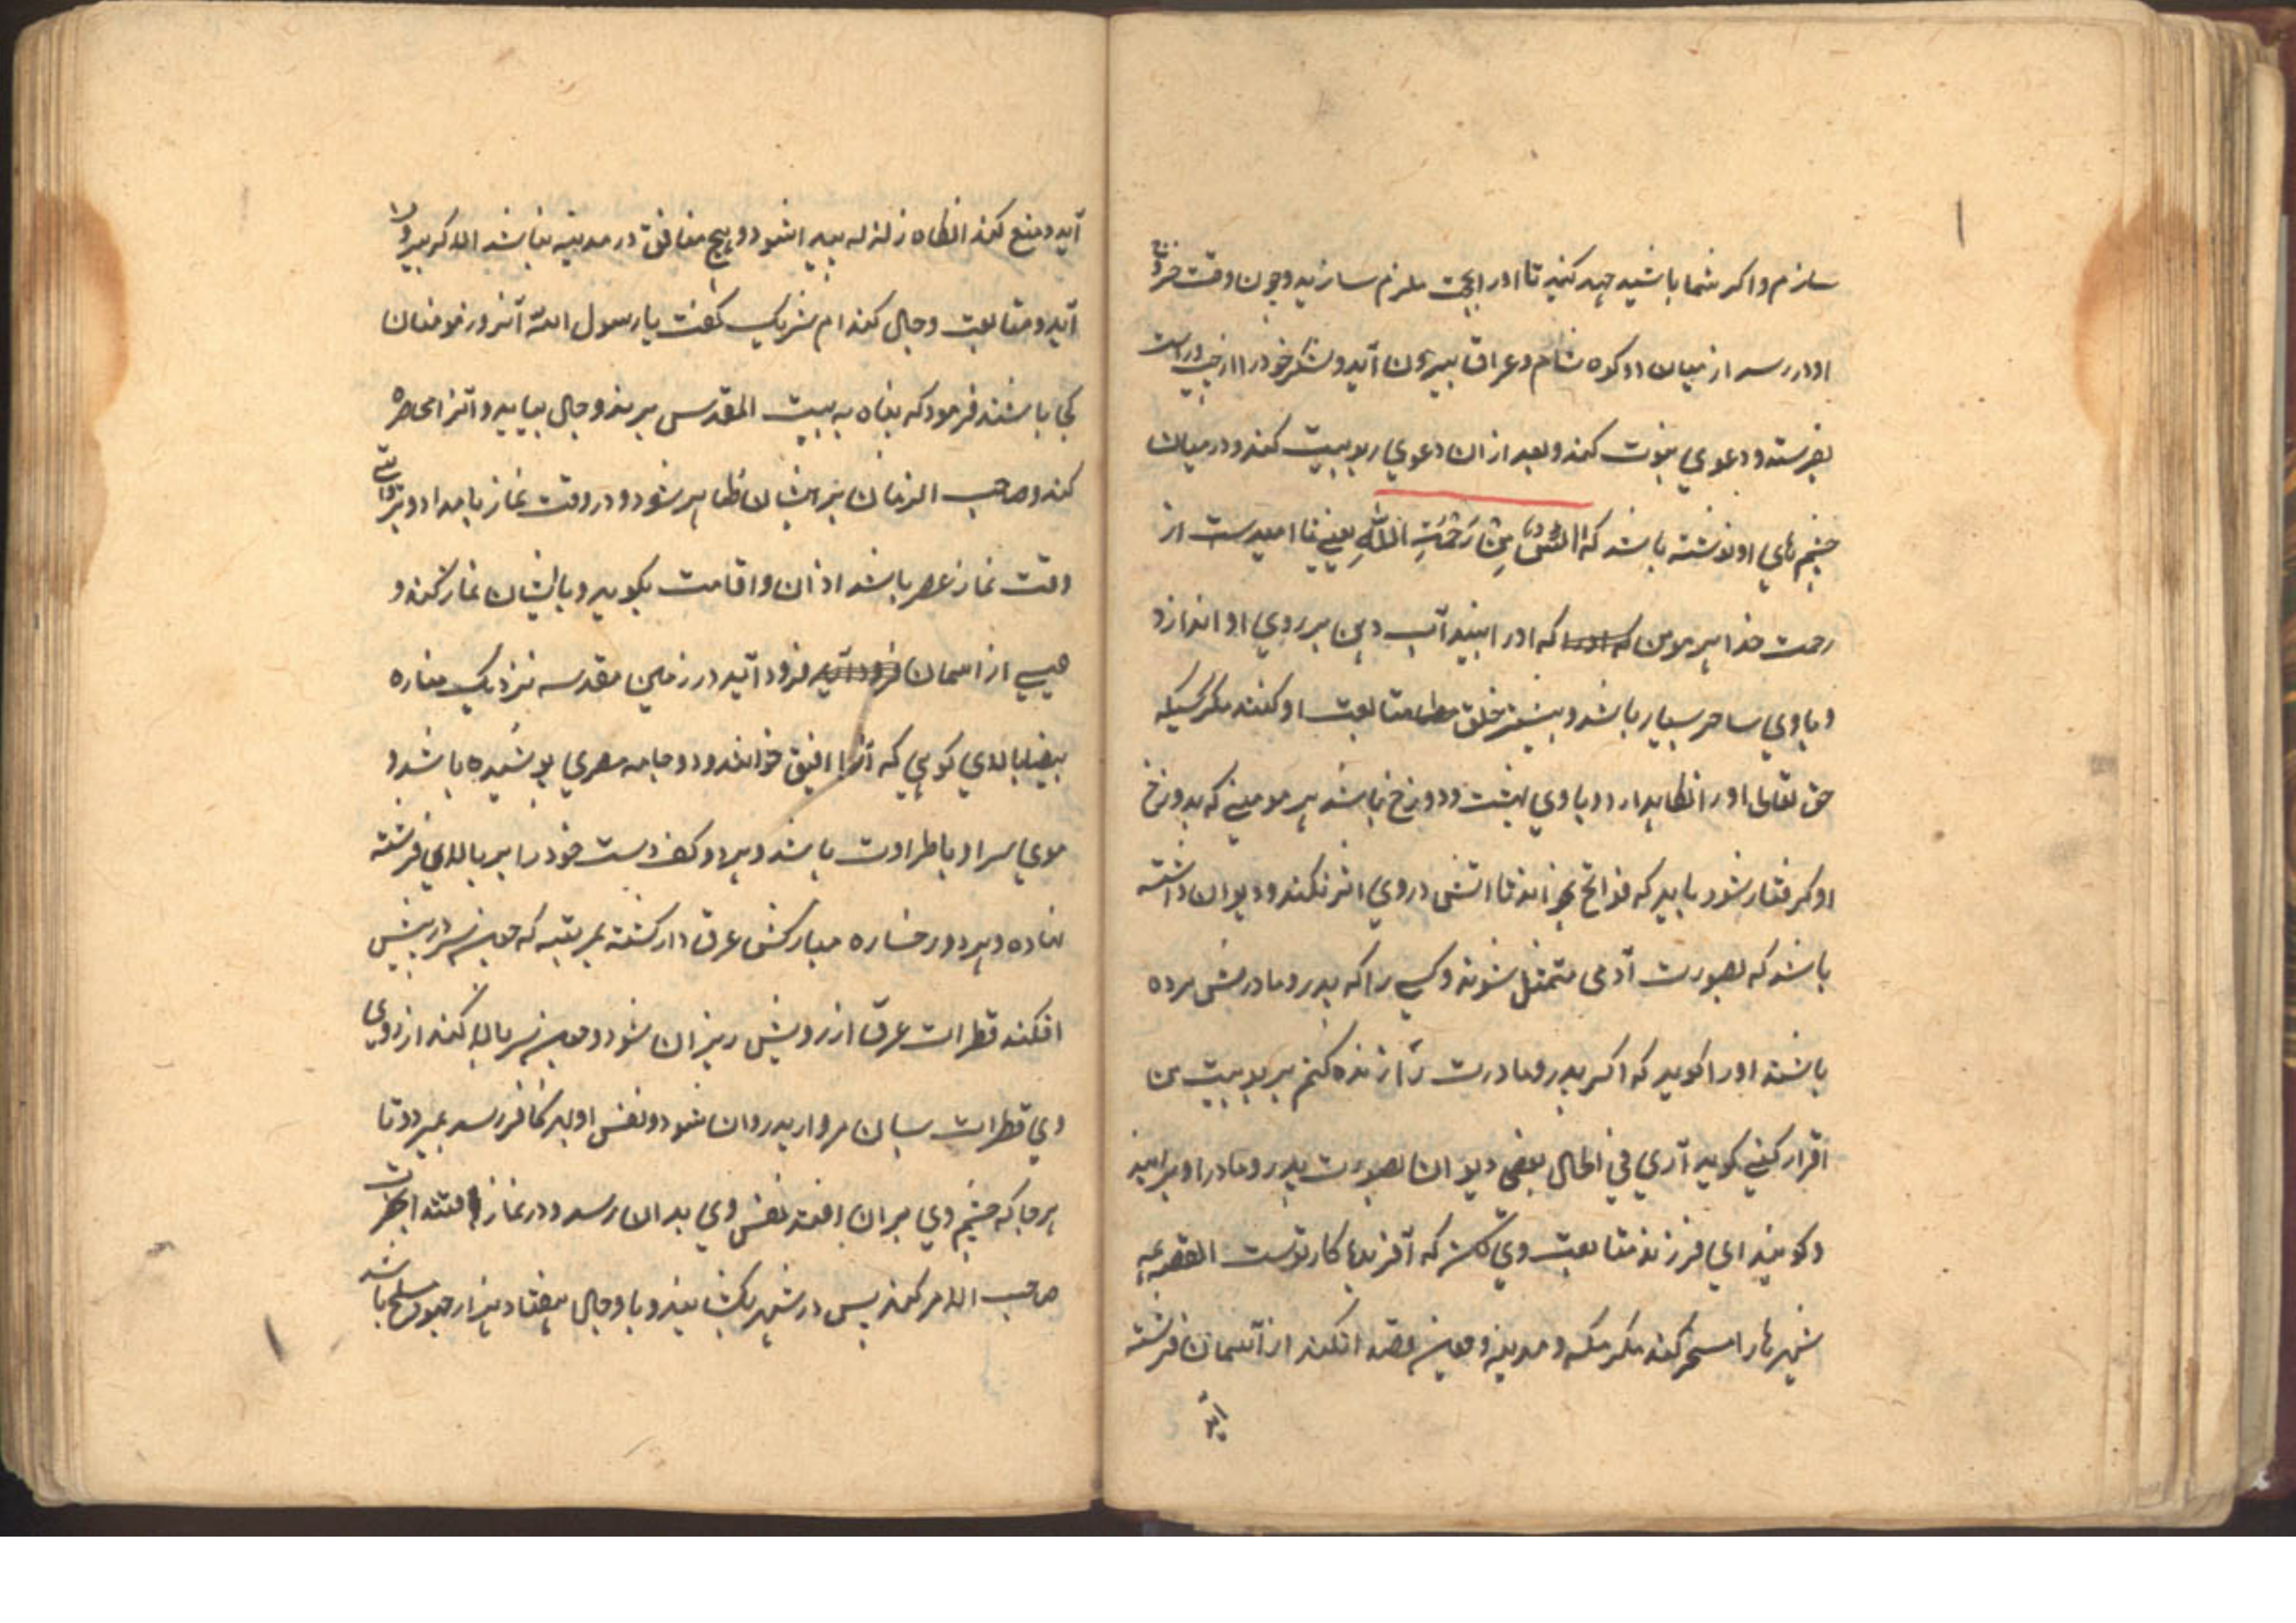 سازم واکر شما باشید جهد کنید تا اورا بحجت ملزم سازید وچون وقت خروج
او در رسد از میان دو کوه شام وعراق بیرون آید ولشکر خود را از چپ وراست
بفرستد ودعوي نبوت کند وبعد ازان دعوي ربوبیت کند ودر میان
چشم هاي او نوشته باشد که من رحمت الله یعنے نا امیدست از
رحمت خدا هر مومن که اورا که اورا بیند آب دهن بر روي او اندازد
وباوي ساحر بسیار باشد وبیشتر خلق متابعت او کنند مکر کسیکه
حق تعالی اورا نکاهدارد وباوي بهشت ودوزخ باشد هر مومنے که بدوزخ
او کرفتار شود باید که فواتح بخواند تا اتش دروي اثر نکند ودیوان داشته
باشد که بصورت آدمی متمثل شوند وکسے را که پدر ومادرش مرده
باشند اورا کوید که اکر پدر ومادرت را زنده کنم بربوبیت من
اقرار کنے کوید آري في الحال بعضی دیوان بصورت پدر ومادر او برایند
وکویند اي فرزند متابعت وي کن که آفریدکار توست القصه همه
شهرهارا مسخر کند مکر مکه ومدینه وچون قصد انکند از آسمان فرشته
آید
آید ومنع کند انکاه زلزله پیدا شود وهیچ منافق در مدینه نباشد الا که بیرون
آید ومتابعت دجال کند ام شریک کفت یا رسول الله آنروز مومنان
کجا باشند فرمود که پناه به بیت المقدس برند ودجال بیاید وآنرا محاصره
کند وصاحب الزمان برایشان ظاهر شود ودر وقت نماز بامداد وبروایتے
وقت نماز عصر باشد اذان واقامت بکوید وبایشان نماز کند و
عیسے از اسمان فرود آید فرود آید در زمین مقدسه نزدیک مناره
بیضا بالاي کوهي که آنرا افیق خوانند ودو جامه مصري پوشیده باشد و
موي سر او باطراوت باشد وهر دو کف دست خود را بر بالهاي فرشته
نهاده وهر دو رخساره مبارکش عرق دار کشته بمرتبه که چون سر در پیش
افکند قطرات عرق از رویش ریزان شود وچون سر بالا کند از روي
وي قطرات بسان مروارید روان شود ونفس او بهر کافر رسد بمیرد وتا
هرجا که چشم وي بران افتد نفس وي بدان رسد ودر نماز اقتدا بحضرت
صاحب الامر کند پس در شهر بکشایند وبا دجال هفتاد هزار جهود مسلح باشد